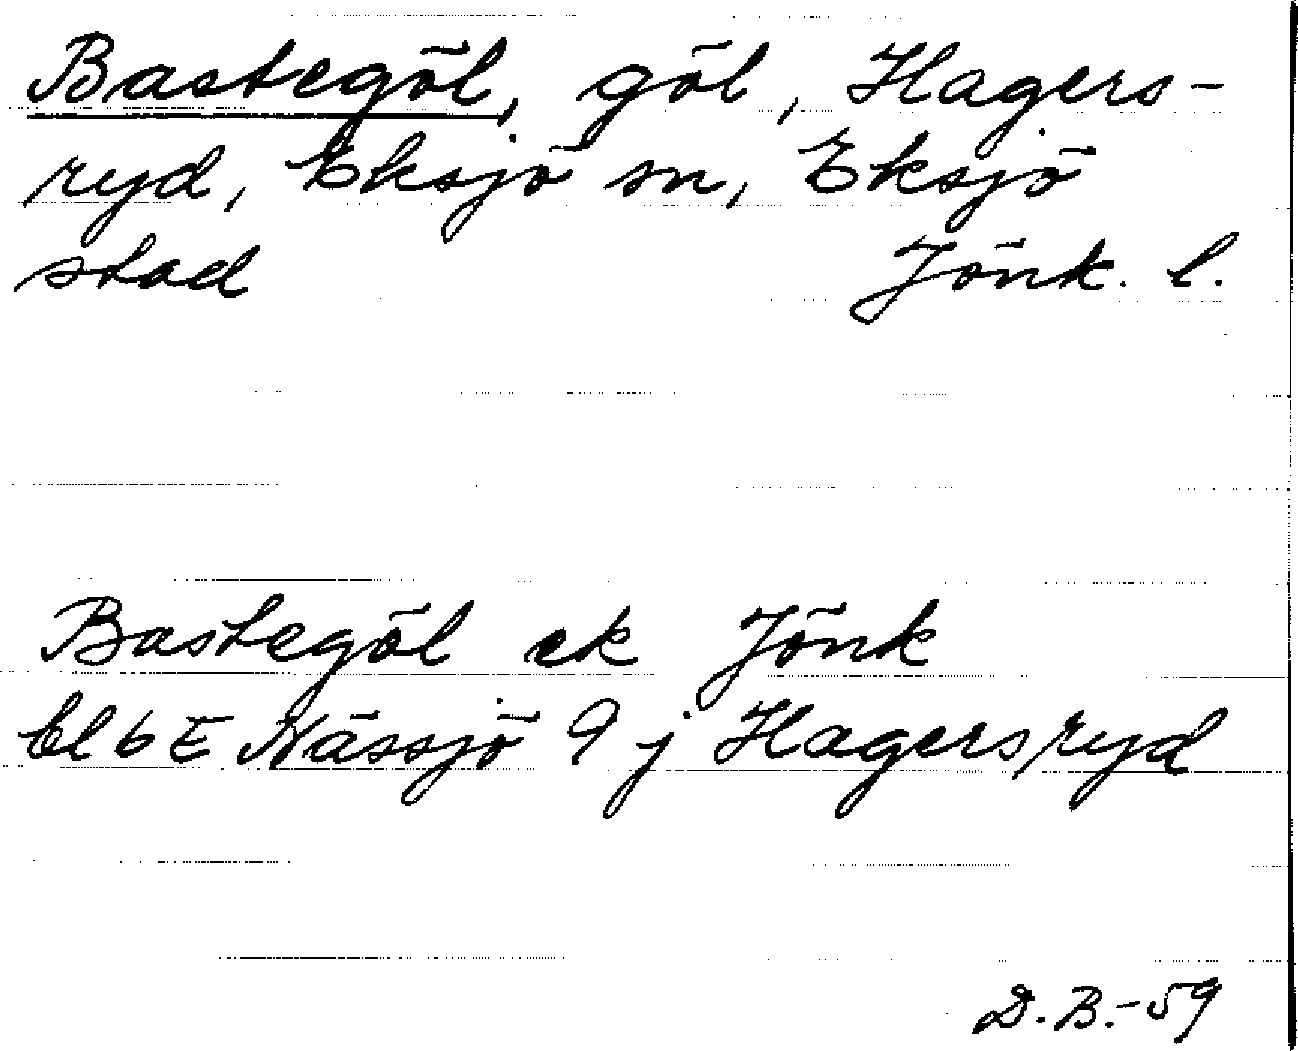 Bastegöl, göl, Hagers-
ryd, Eksjö sn, Eksjö
stad Jönk. l.
Bastegöl ek Jönk
bl 6 E Nässjö 9 j Hagersryd
D.B.-59